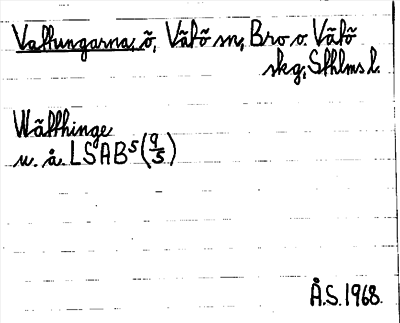 Valtungarna, ö, Vätö sn, Bro o. Vätö
skg, Sthlms l.
Wålthinge
u. å. LSAB⁵ (9/5)
Å.S. 1968.